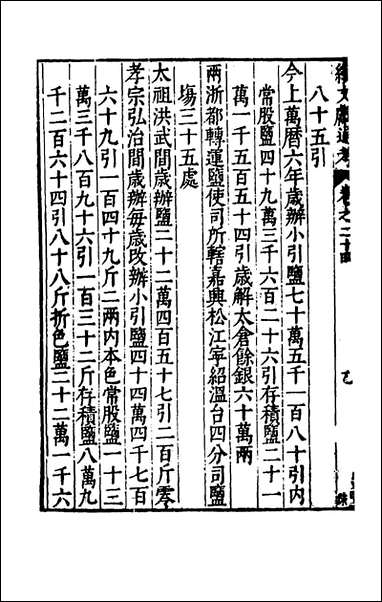 續文獻通考 卷之二十四
八十五引
今上萬曆六年歲辦小引鹽七十萬五千一百八十引內
常股鹽四十九萬三千六百二十六引存積鹽二十一
萬一千五百五十四引歲解太倉餘銀六十萬兩
兩浙都轉運鹽使司所轄嘉興松江寧紹溫台四分司鹽
塲三十五處
太祖洪武間歲辦鹽二十二萬四百五十七引二百斤零
孝宗弘治間歲辦每歲改辦小引鹽四十四萬四千七百
六十九引一百四十九斤二兩內本色常股鹽一十三
萬三千八百九十六引一百三十二斤存積鹽八萬九
千二百六十四引八十八斤折色鹽二十二萬一千六